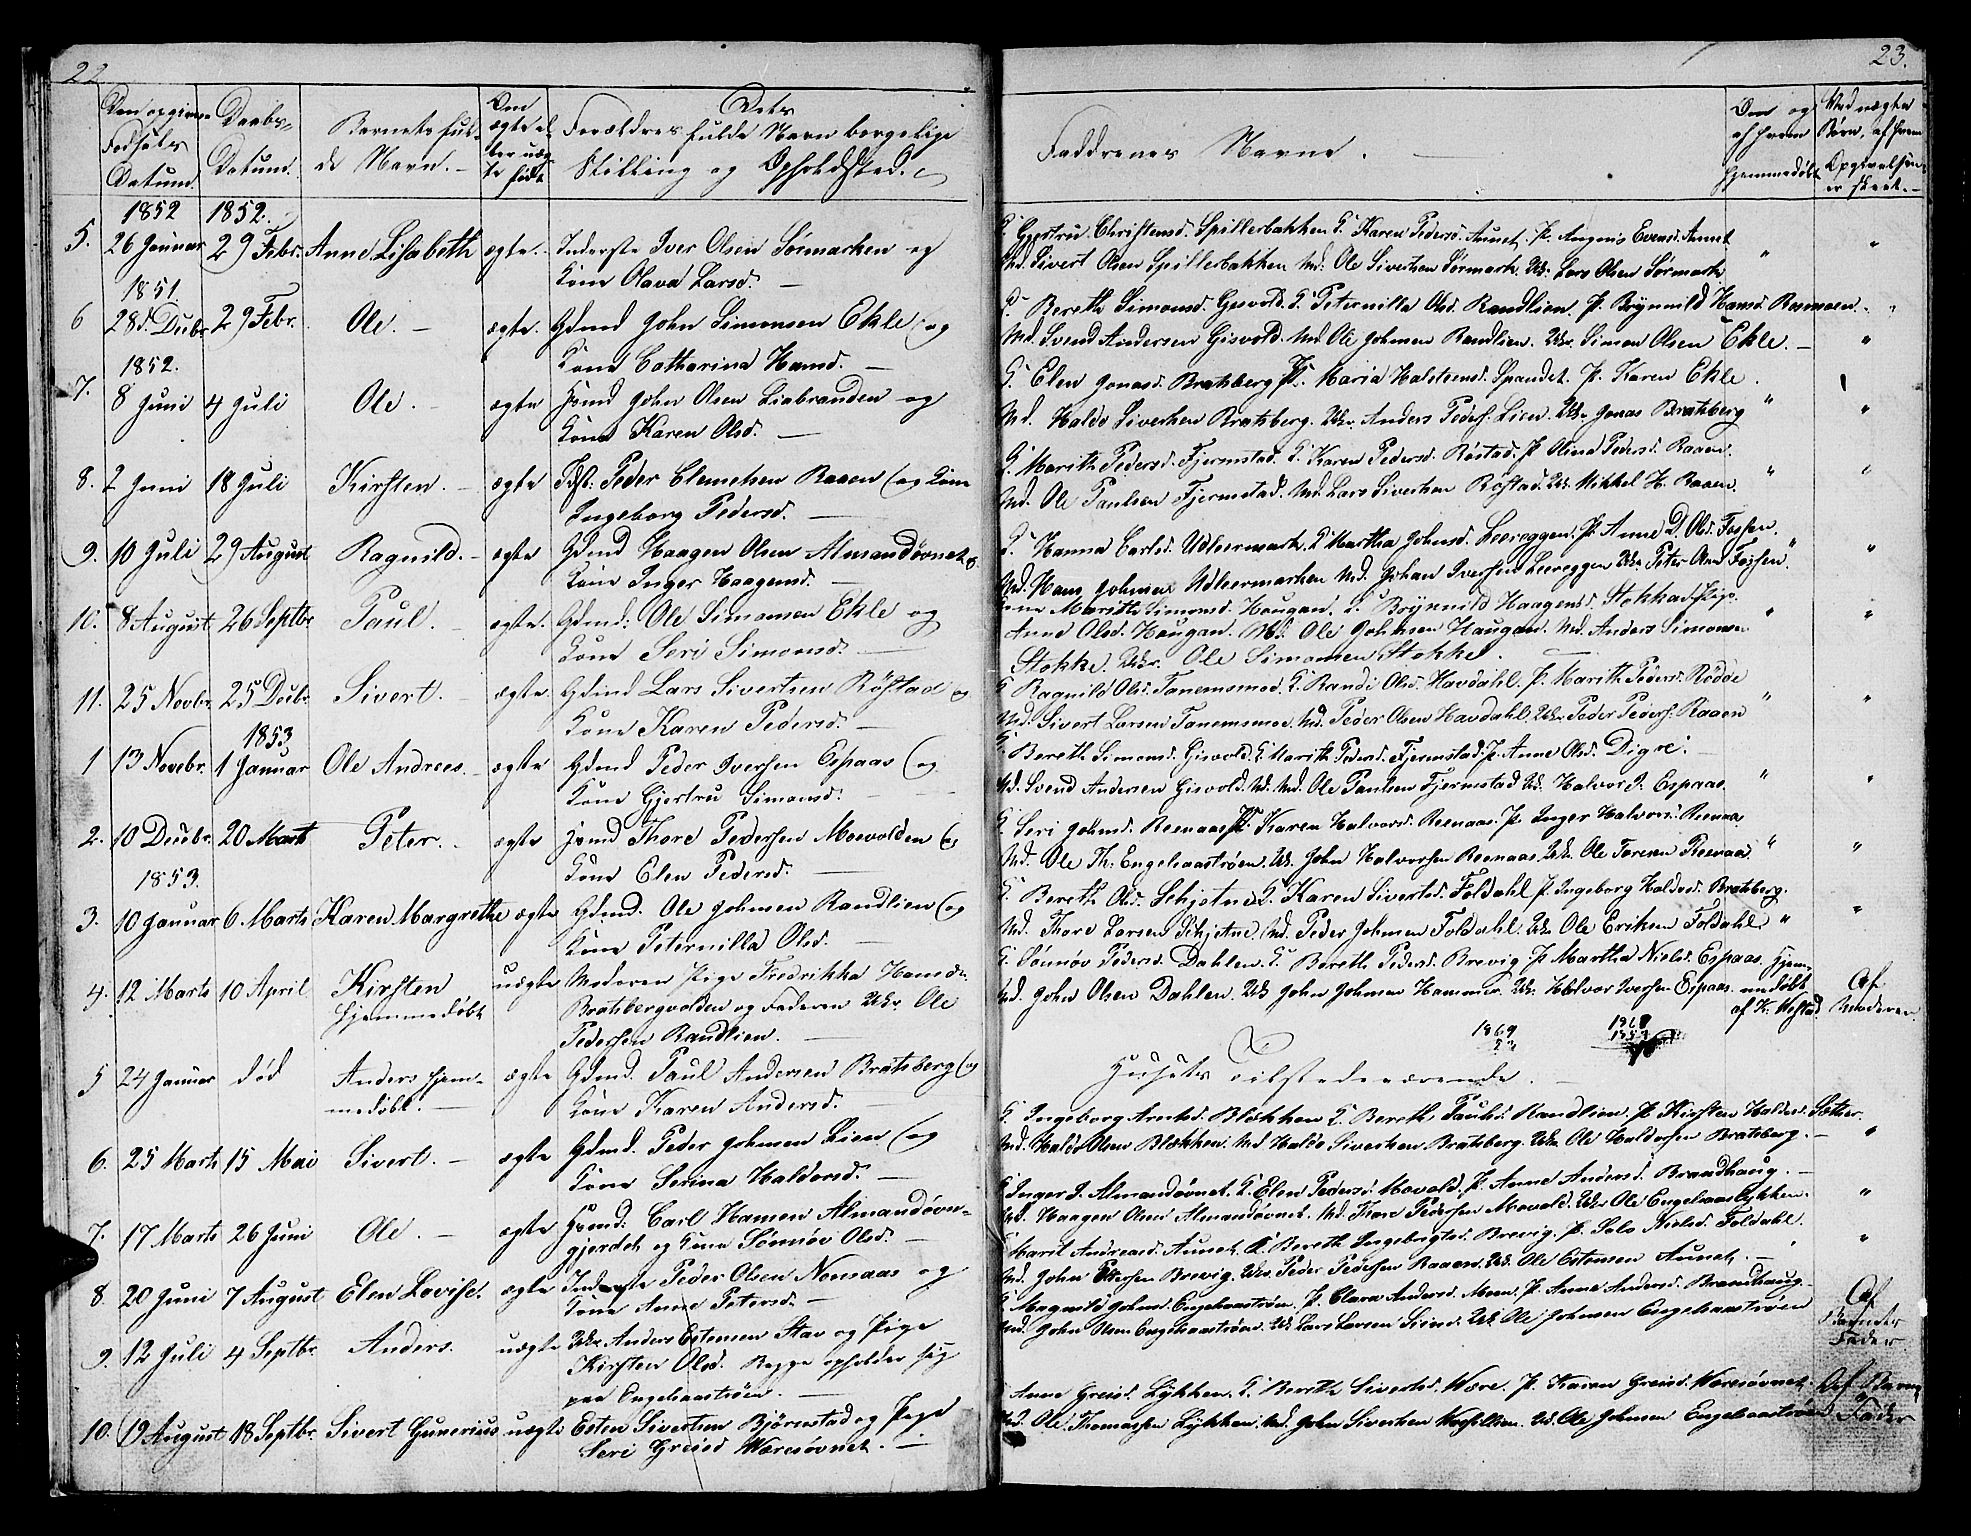 22
Den opgivne Fødsels Datum.
Daabs-Datum.
Barnets fulde Navn.
Om ægte eller uægte født
Dets Forældres fulde Navn borgelige Stilling og Opholdsted.
1852 1852.
5. 26 Januar 29 Febr. Anne Lisabeth ægte. Inderste Iver Olsen Sørmarken og
Kone Olava Larsd.
1851
6 28d Decbr 29 Febr. Ole. ægte. Gdmd John Simonsen Ekle og
Kone Catharina Hansd.
1852.
7. 8 Juni 4 Juli Ole. ægte Hsmd John Olsen Liabranden og
Kone Karen Olsd.
8. 2 Juni 18 Juli Kirsten. ægte Peder Clemetsen Raaen og Kone
Ingeborg Pedersd.
9. 10 Juli 29 August Ragnild. ægte Gdmd Haagen Olsen Almandøvnet og
Kone Inger Haagensd.
10. 8 August 26 Septbr Paul. ægte. Gdmd: Ole Simonsen Ekle og
Kone Seri Simonsd.
11. 25 Novbr. 25 Decbr. Sivert. ægte Gdmd Lars Sivertsen Røstad og
Kone Karen Pedersd.
1853
1 13 Novebr. 1 Januar Ole Andreas. ægte Gdmd Peder Iversen Espaas og
Kone Gjertru Simonsd.
2. 10 Decbr. 20 Mart Peter. ægte Hsmd Thore Pedersen Moevolden og
Kone Elen Pedersd.
1853.
3. 10 Januar 6. Marts Karen Margrethe ægte Gdmd. Ole Johnsen Randlien og
Kone Peternilla Olsd.
4. 12 Marts 10 April Kirsten uægte Moderen Pige Fredrikka Hansd.
hjemmedøbt Bratsbergvolden og Faderen Uk. Ole
Pedersen Randlien.
5 24 Januar død Anders hjem- ægte Gdmd. Paul Andersen Bratsberg og
medøbt. Kone Karen Andersd.
6. 25 Marts 15 Mai Sivert. ægte Gdmd. Peder Johnsen Lien og
Kone Serina Haldorsd.
7. 17 Marts 26 Juni Ole. ægte Hsmd: Carl Hansen Almandøvn-
gjerdet og Kone Sønnøv Olsd.
8. 20 Juni 7 August Elen Lovise. ægte Inderste Peder Olsen Nemaas og
Kone Anne Petersd.
9. 12 Juli 4 Septbr. Anders. uægte Uk. Anders Estensen Stav og Pige
Kirsten Olsd. Begge opholder sig
paa Engelsaastrøen.
10. 19 August 18 Septbr. Sivert Gunerius uægte Esten Sivertsen Bjørnstad og Pige
Seri Greisd Wæresøvnet.
23.
Faddrenes Navne.
Om og af hvem hjemmedøbt
Ved uægte Børn, af hvem Opgivelsen er skeet.
Gjertru Christensd. Spillerbakken K. Karen Pedersd. Aunet. P. Evensd. Aunet
Md. Sivert Olsen Spillerbakken Md: Ole Sivertsen Sørmark. Uk: Lars Olsen Sørmark
K. Bereth Simonsd. Gisvold. K. Peternilla Olsd. Randlien. P. Brynnild Hansd.
Md. Svend Andersen Gisvold. Md Ole Johnsen Randlien. Uk. Simon Olsen Ekle.
K. Elen Jonasd. Bratsberg K. Maria Halstensd. Spandet. P. Karen Ekle.
Md. Haldo Sivertsen Bratsberg. Uk. Anders Peders. Lien. Uk. Jonas Bratsberg
K. Marith Pedersd. Fjermstad. K. Karen Pedersd. Røstad. P. Olina Pedersd. Raaen.
Md. Ole Paulsen Fjermstad. Md. Lars Sivertsen Røstad. Uk. Mikkel H. Raaen.
K. Hanna Carlsd. Udleermark. K. Martha Johnsd. Leereggen. P. Anne D. Olsd. Fossen.
Md. Hans Johnsen Udleermarken Md. Johan Iversen Leereggen Uk. Peter Fossen.
Kone Marith Simonsd. Haugan. K. Brynnild Haagensd. Stokke.
Anne Olsd. Haugan. Md. Ole Johnsen Haugan. Md. Anders Simonsen
Stokke. Uk. Ole Simonsen Stokke.
K Ragnild Olsd. Tanemsmoe. K. Randi Olsd. Havdahl. P. Marith Pedersd. Rødde
Md. Sivert Larsen Tanemsmoe. Md. Peder Olsen Havdahl. Uk. Peder Peders. Raaen
K. Bereth Simonsd. Gisvold. K. Marith Pedersd. Fjermstad. P. Anne Olsd. Digre.
Md. Svend Andersen Gisvold. Md. Ole Paulsen Fjermstad Uk. Halvor I. Espaas.
K. Seri Johnsd. Reenaas K. Karen Halvorsd. Reenaas. P. Inger Halvors. Reenaas
Md. Ole Th. Engelsaastrøen. Uk. John Halvorsen Reenaas. Uk. Ole Toresen Reenaas.
K. Bereth Olsd. Schjetne. K. Karen Sivertsd. Foldahl P. Ingeborg Haldosd. Bratsberg.
Md. Thore Larsen Schjetne. Md. Peder Johnsen Foldahl. Uk Ole Eriksen Foldahl
K. Sønnøv Pedersd. Dahlen. K. Bereth Pedersd. Brevig. P. Martha Nielsd. Espaas. hjem-
Md. John Olsen Dahlen. Uk John Johnsen Hammer. Uk. Halvor Iversen Espaas. medøbt Af
af K. Moderen.
1869
Husets Tilstedeværende.
K. Ingeborg Arntsd. Blækken K. Bereth Paulsd. Randlien. P. Kirsten Haldosd. Sæther.
Md. Haldo Olsen Blækken. Md. Haldo Sivertsen Bratsberg. Uk. Ole Haldorsen Bratsberg.
K. Inger I. Almandøvnet. K. Elen Pedersd. Movold. P. Anne Andersd. Brandhaug.
Md. Haagen Olsen Almandøvnet. Md. Thore Pedersen Movold. Uk. Ole Engelsaaslykken.
K Marit Andreasd. Aunet. K. Bereth Ingebrigtsd. Brevig. P. Nielsd. Foldahl.
Md. John Brevig. Uk. Peder Pedersen Raaen. Uk. Ole Estensen Aunet.
K. Magnild Johnsd. Engelsaastrøen. P. Clara Andersd. Moen. P. Anne Andersd. Brandhaug. Af
Md. John Olsen Engelsaastrøen. Uk Lars Larsen Uk. Ole Johnsen Engelsaastrøen Barnets
Fader
K Anne Greisd. Lykken. K. Berith Sivertsd. Være. P. Karen Greisd. Wæresøvnet. Af Barnets
Md. Ole Thomassen Lykken. Md. John Sivertsen Uk. Ole Johnsen Engelsaastrøen Fader